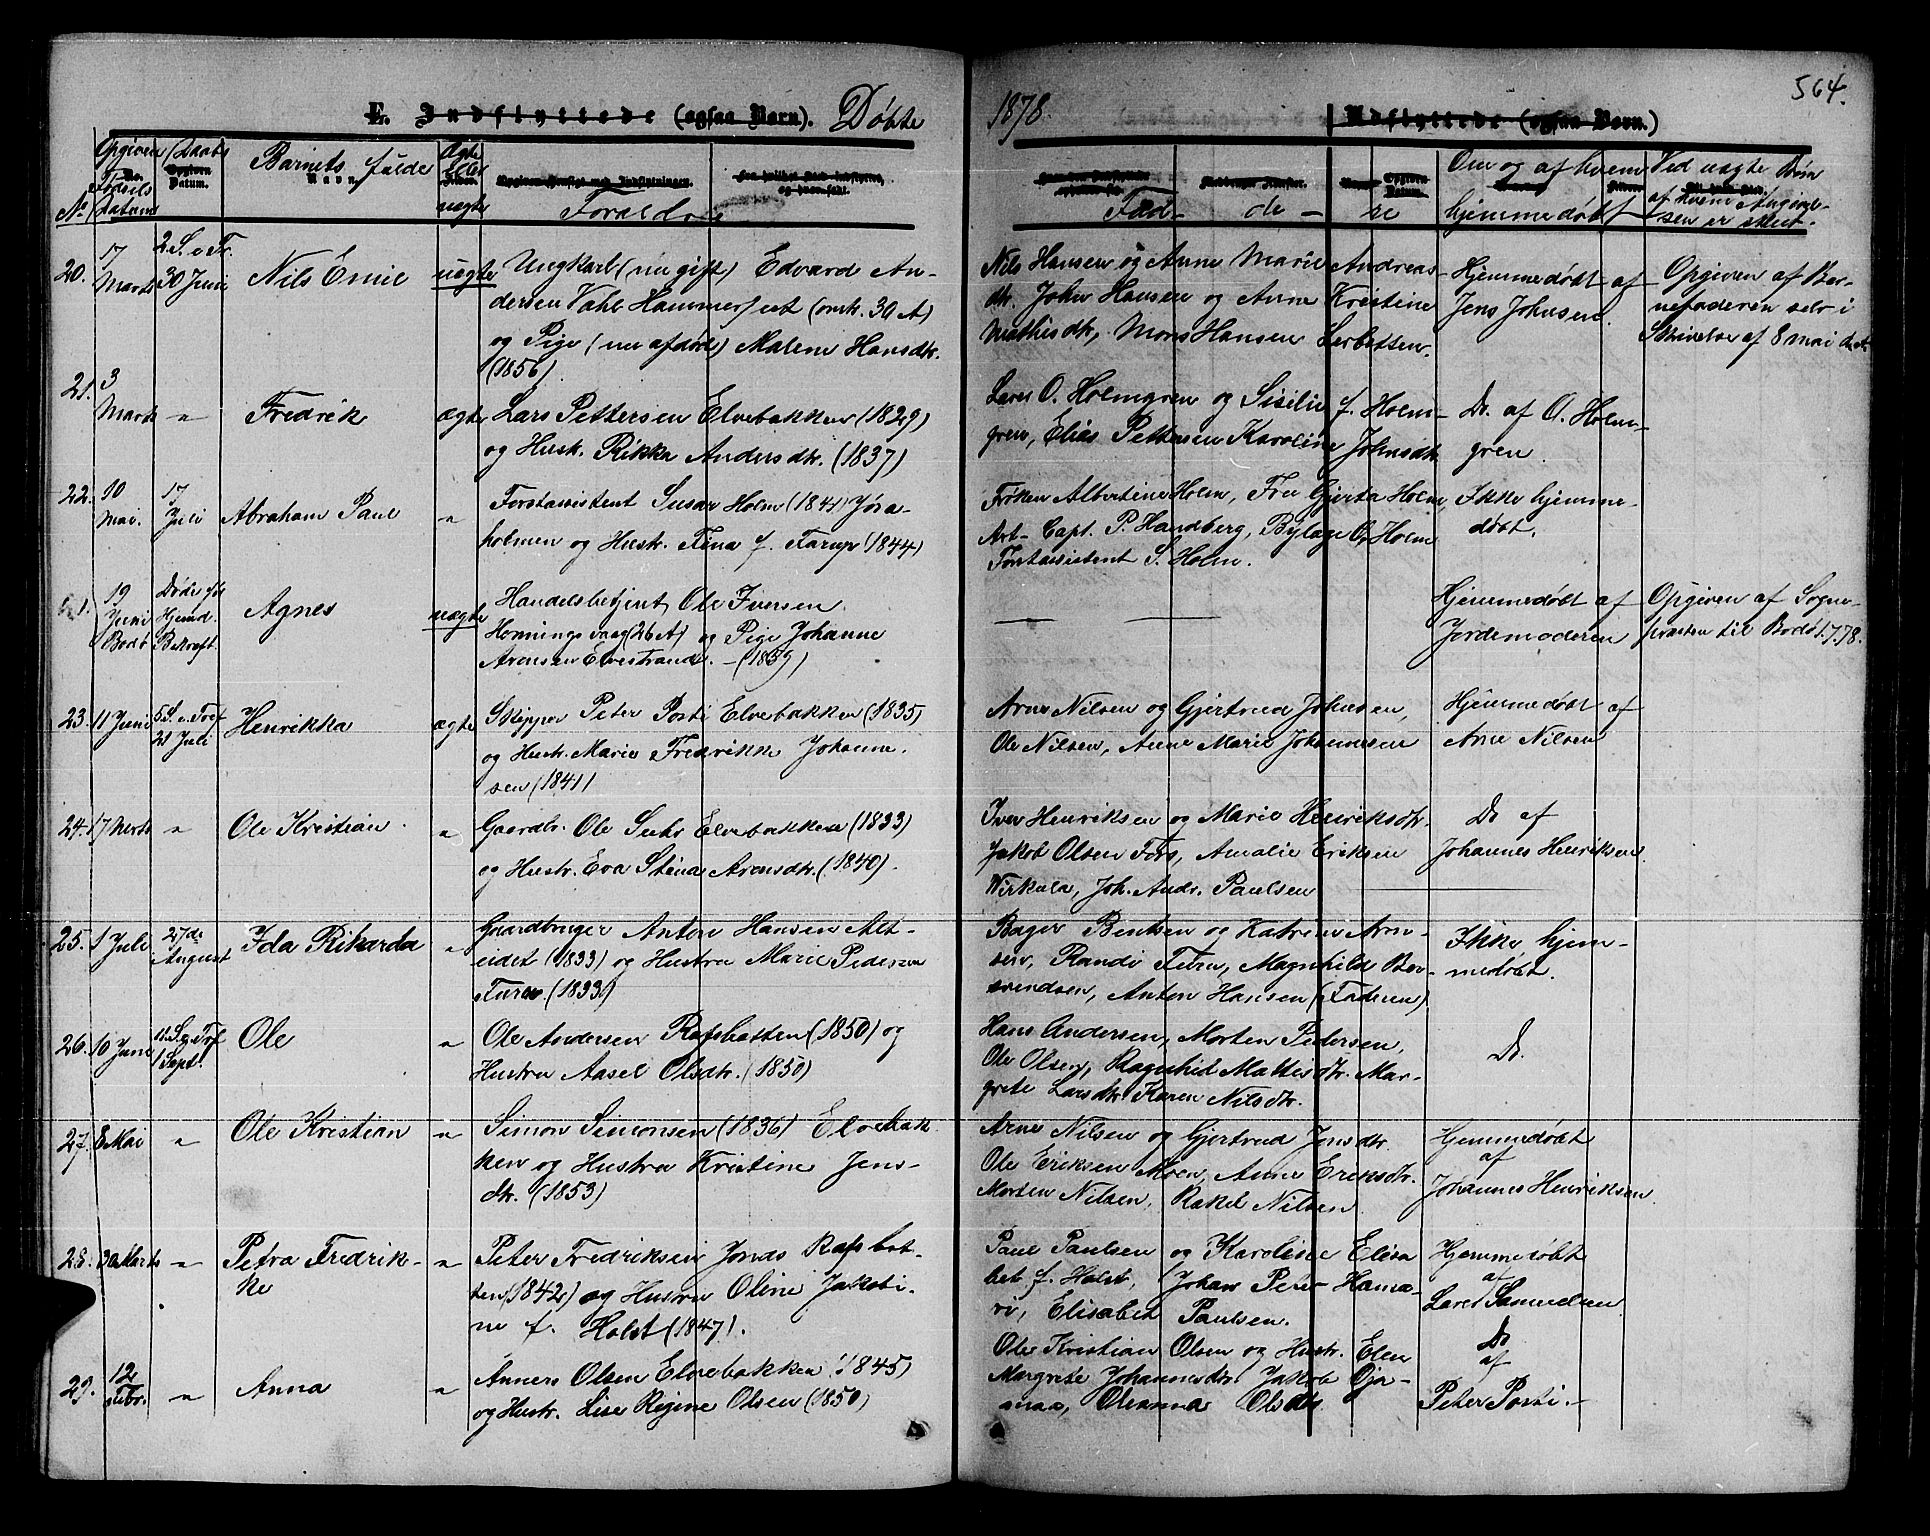 564.
E. Indflyttede (ogsaa Børn). Døbte
1878. Udflyttede (ogsaa Børn.)
No Opgiven Fødsels Datum
Daabs Datum.
Barnets fulde Navn
Ægte eller uægte
Forældre
Fad- de- re
Om og af hvem hjemmedøbt
Ved uægte Børn af hvem Angivelsen er skeet.
20. 17 Marts 2 S. e. Tr. 30 Juni Nils Emil uægte
Ungkarl (nu gift) Edvard An-
dersen Vahl Hammerfest (omk. 30 A)
og Pige (nu afdød) Malene Hansdtr.
(1856)
Nils Hansen og Anne Marie Andreas-
dtr. John Hansen og Anne Kristine
Mathisdtr, Mons Hansen Lerbotten.
Hjemmedøbt af
Jens Johnsen.
Opgiven af Bar-
nefaderen selv i
Skrivelse af 8 mai d. A.
21. 3 Marts " Fredrik ægte
Lars Pettersen Elvebakken (1829)
og Hustr. Rikka Andersdtr. (1837)
Lars O. Holmgren og Sisilie f. Holm-
gren, Elias Pettersen Karoline Johnsdtr.
Do. af O. Holm-
gren.
22. 10 Mai. 17 Juli Abraham Paul "
Forstassistent Susar Holm (1841) Jøra-
holmen og Hustr. Fina f. Farup (1844)
Frøken Albertine Holm, Fru Gjerta Holm,
Art- Capt. P. Handberg, Byfoge O. Holm
Forstassistent S. Holm.
Ikke hjemme-
døbt.
19 Juni Bodø Døde før Hjemd. Bekræft. Agnes uægte
Handelsbetjent Ole Iversen
Honningsvaag (26 A) og Pige Johanne
Aronsen Elvestrand. - (1859)
Hjemmedøbt af
Jordemoderen
Opgiven af Sogne-
præsten til Bodø 1.7.78.
23. 11 Juni 5. S. e. Tref. 21 Juli Henrikka ægte
Skipper Peter Posti Elvebakken (1835)
og Hustr. Marie Fredrikke Johanne-
sen (1841)
Arne Nilsen og Gjertrud Johnsen,
Ole Nilsen, Anne Marie Johannesen
Hjemmedøbt af
Arne Nilsen
24. 17 Marts " Ole Kristian "
Gaardbr. Ole Suhr Elvebakken (1833)
og Hustr. Eva Stina Aronsdtr. (1840)
Iver Henriksen og Marie Henriksdtr.
Jakob Olsen Fors, Amalie Eriksen
Wirkula, Joh. Andr. Paulsen
Do af
Johannes Henriksen.
25. 1 Juli 27de August Ida Rikarda "
Gaardbruger Anton Hansen Alt-
eidet (1833) og Hustru Marie Pedersen
Furu. (1833)
Bager Bentsen og Katrine Arn-
sen, Randi Furu, Magnhild Ber-
svendsen, Anton Hansen (Faderen)
Ikke hjem-
medøbt.
26. 10 Juni 11. S. e. Tref 1 Sept. Ole "
Ole Andersen Rafsbotten (1850) og
Hustru Aasel Olsdtr. (1850)
Hans Andersen, Morten Pedersen,
Ole Olsen, Ragnhild Mattisdtr. Mar-
grete Larsdtr. Karen Nilsdtr.
Do.
27. 8 Mai " Ole Kristian "
Simon Simonsen (1836) Elvebak-
ken og Hustru Kristine Jens-
dtr. (1853)
Arne Nilsen og Gjertrud Jonsdtr.
Ole Eriksen Moen, Anne Eriksdtr.
Morten Nilsen, Rakel Nilsen
Hjemmedøbt
af
Johannes Henriksen.
28. 30 Marts " Petra Fredrik-
ke "
Peter Fredriksen Jonas Rafsbot-
ten (1842) og Hustru Oline Jakobi-
ne f. Holst (1847).
Paul Paulsen og Karoline Elisa-
bet f. Holst, Johan Peter Hama-
ri, Elisabet Paulsen.
Hjemmedøbt
af
Lars Samuelsen.
29. 12 Febr. " Anna "
Anners Olsen Elvebakken (1845)
og Hustr. Lise Regine Olsen (1850)
Ole Kristian Olsen og Hustr. Elen
Margrete Johannesdtr. Jakob Ojar-
maa, Oleanna Olsdtr.
Do
af
Peter Posti.-